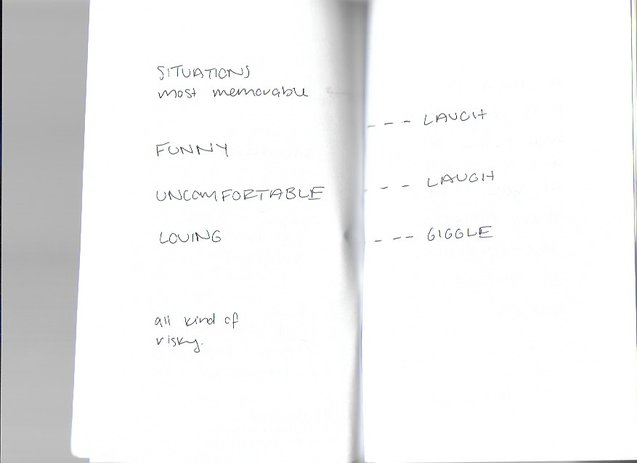 SITUATIONS
most memorable
FUNNY --- LAUGH
UNCOMFORTABLE --- LAUGH
LOVING --- GIGGLE
all kind of
risky.